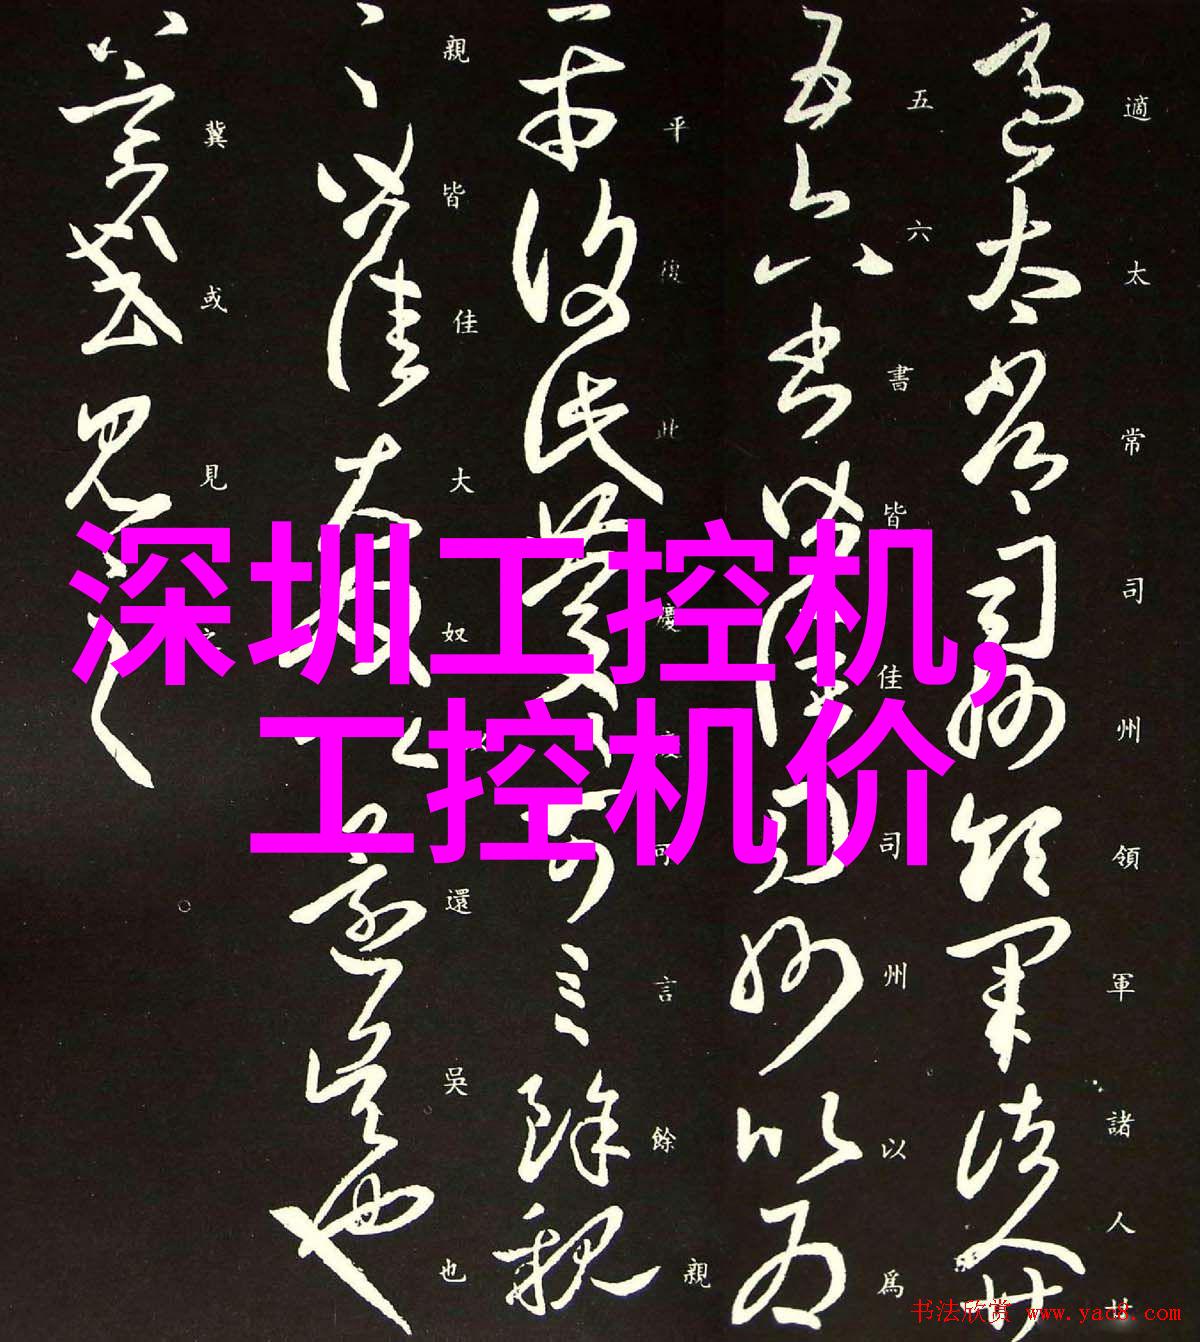 適太常司州領軍諸人廿
五六書皆佳司州以為
平復此慶之可言餘親
親皆佳大奴以還吳也
冀或見之
深圳工控机,
工控机价
书法欣赏 www.yac8.com